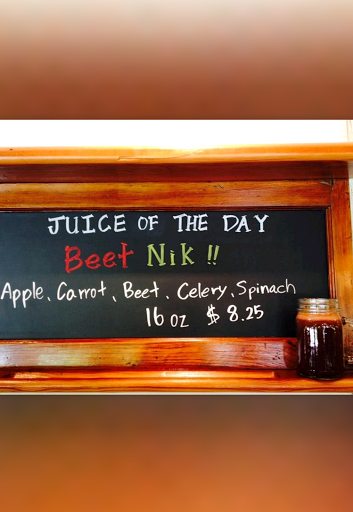 JUICE OF THE DAY
Beet Nik !!
Apple, Carrot, Beet, Celery, Spinach
16 oz $ 8.25